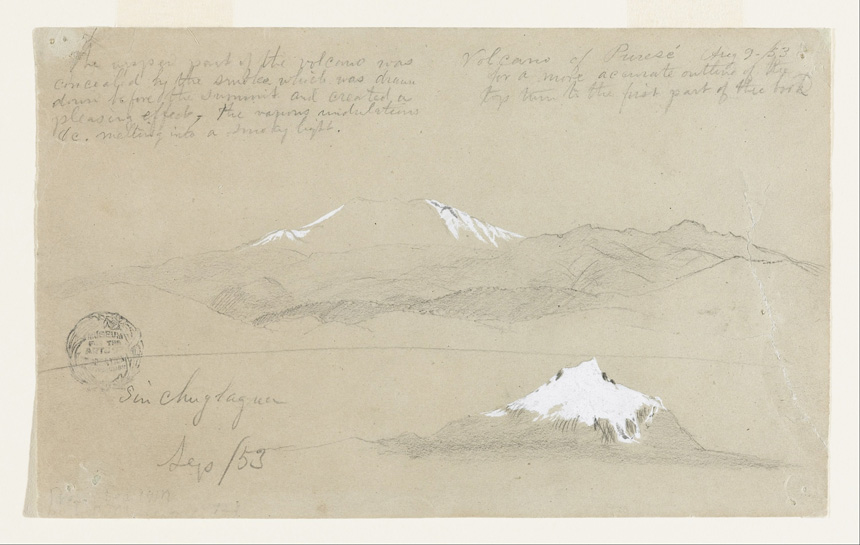 The upper part of the volcano was
concealed by the smoke which was drawn
down before the summit and created a
pleasing effect, the vapory undulations
&c. melting into a smoky light.
Volcano of Puresé Aug 9-53
for a more accurate outline of the
top turn to the first part of the book
MUSEUM
FOR THE
ARTS
Sin Chuglagua
Sep /53